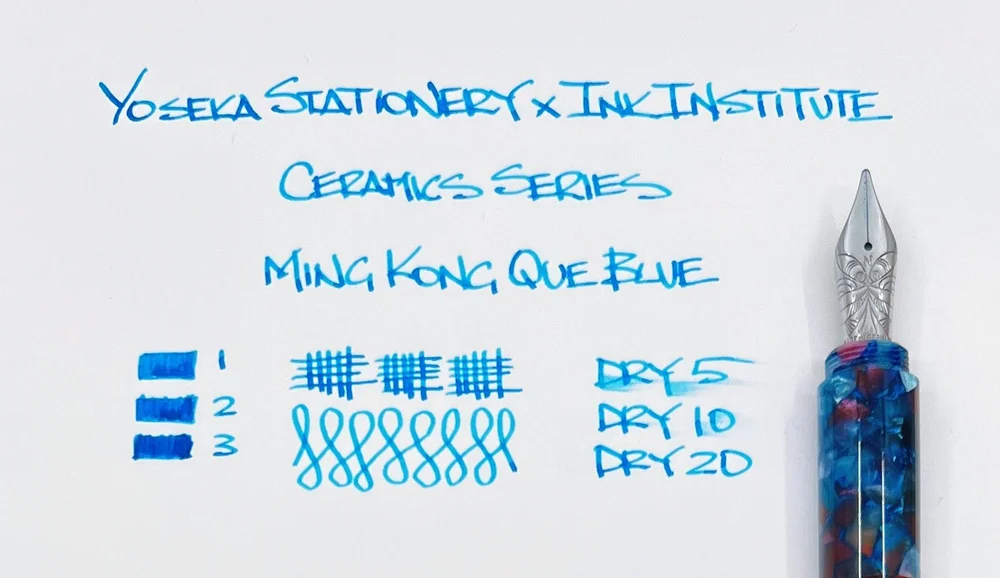 YOSEKA STATIONERY X INK INSTITUTE
CERAMICS SERIES
MING KONG QUE BLUE
1
2
3
DRY 5
DRY 10
DRY 20